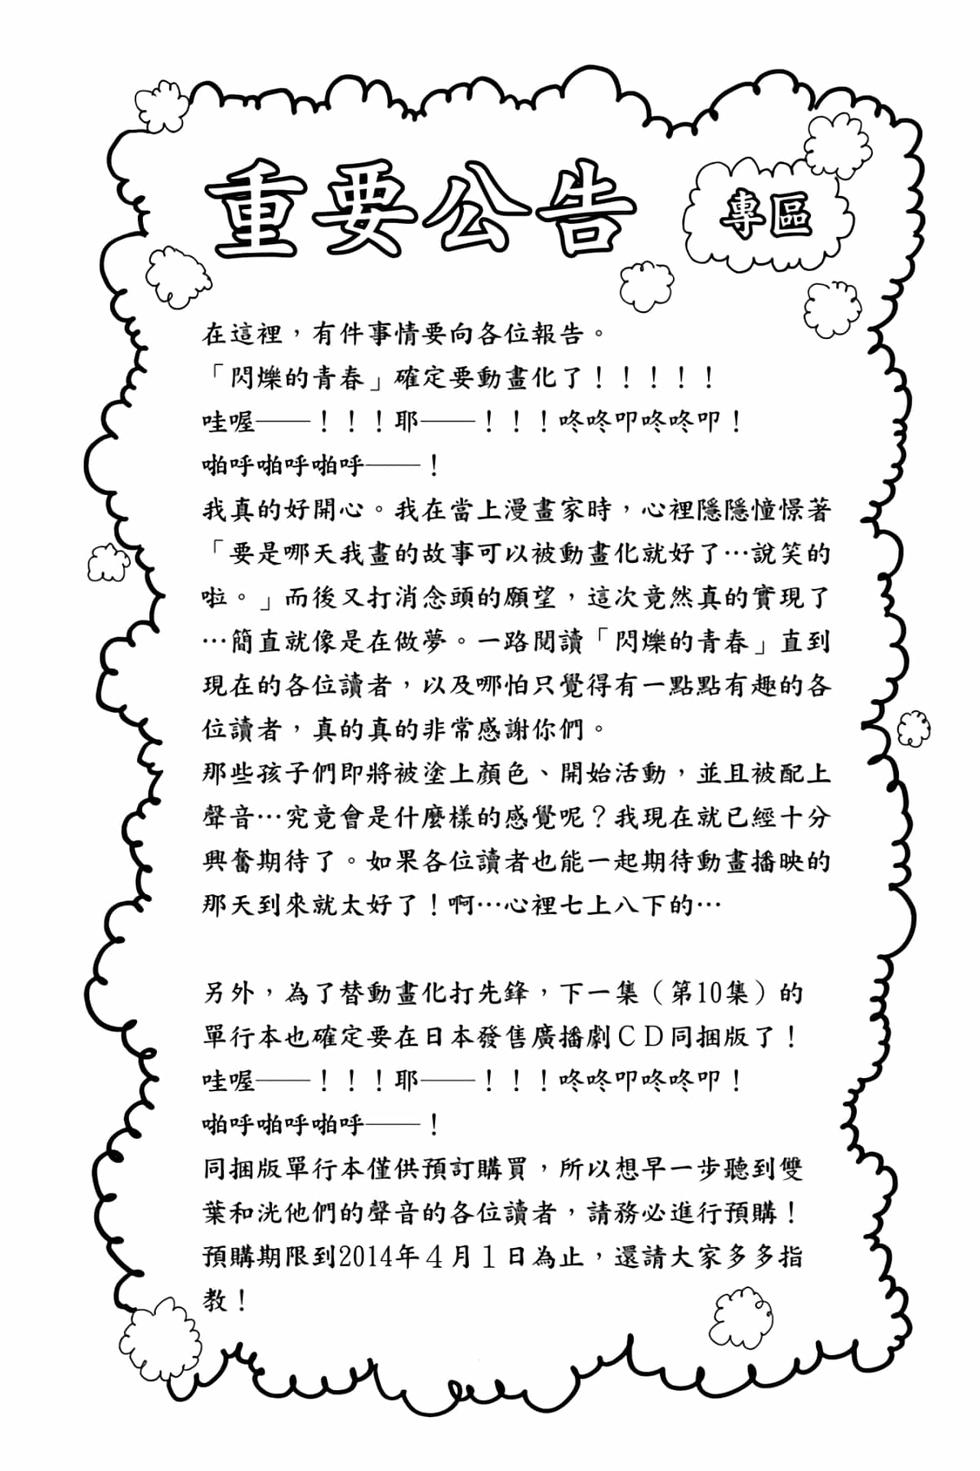 重要公告 專區
在這裡，有件事情要向各位報告。
「閃爍的青春」確定要動畫化了！！！！！
哇喔——！！！耶——！！！咚咚叩咚咚叩！
啪呼啪呼啪呼——！
我真的好開心。我在當上漫畫家時，心裡隱隱憧憬著
「要是哪天我畫的故事可以被動畫化就好了…說笑的
啦。」而後又打消念頭的願望，這次竟然真的實現了
…簡直就像是在做夢。一路閱讀「閃爍的青春」直到
現在的各位讀者，以及哪怕只覺得有一點點有趣的各
位讀者，真的真的非常感謝你們。
那些孩子們即將被塗上顏色、開始活動，並且被配上
聲音…究竟會是什麼樣的感覺呢？我現在就已經十分
興奮期待了。如果各位讀者也能一起期待動畫播映的
那天到來就太好了！啊…心裡七上八下的…
另外，為了替動畫化打先鋒，下一集（第10集）的
單行本也確定要在日本發售廣播劇ＣＤ同捆版了！
哇喔——！！！耶——！！！咚咚叩咚咚叩！
啪呼啪呼啪呼——！
同捆版單行本僅供預訂購買，所以想早一步聽到雙
葉和洸他們的聲音的各位讀者，請務必進行預購！
預購期限到2014年４月１日為止，還請大家多多指
教！